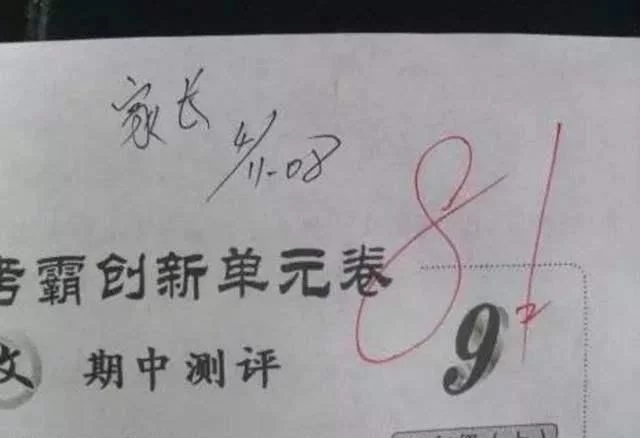 家长
4/11-08
81
霸创新单元卷
9
文 期中测评